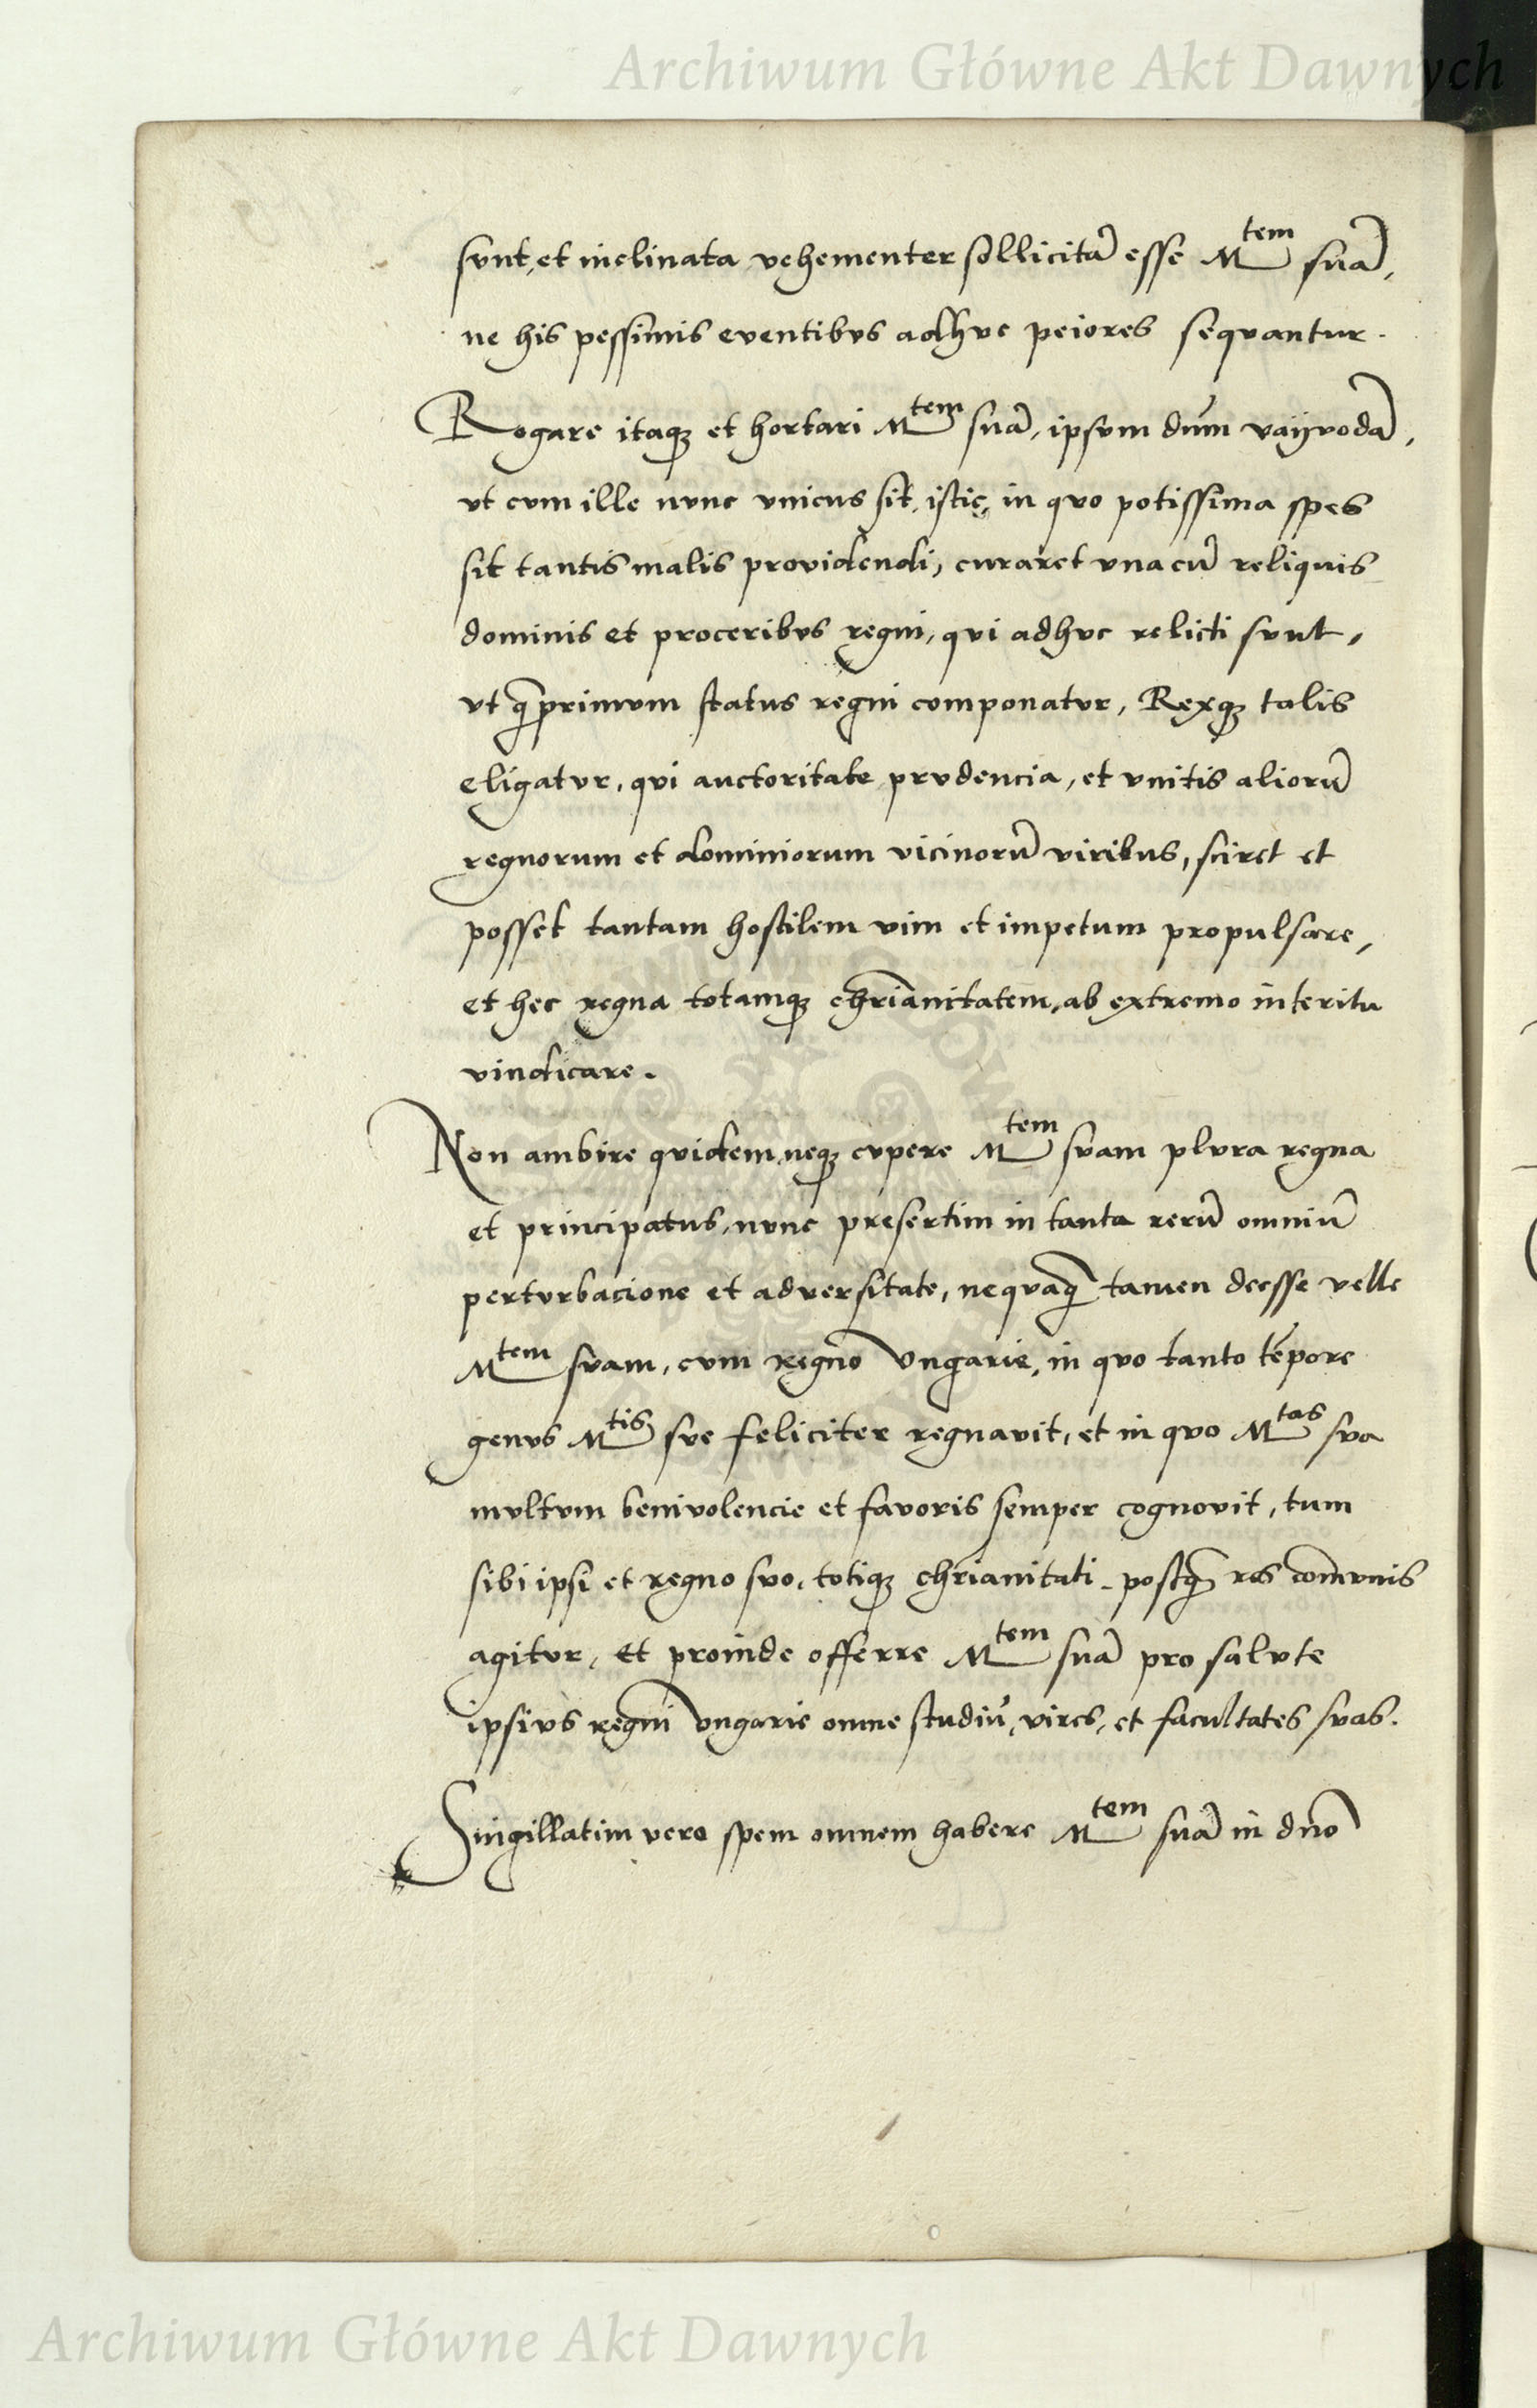 Archiwum Główne Akt Dawnych
svnt, et inclinata vehementer sollicitā esse M^tem suā,
ne his pessimis eventibvs adhvc peiores seqvantur.
Rogare itaqꝫ et hortari M^tem suā, ipsvm dn̄m vayvodā,
vt cvm ille nvnc vnicus sit istic, in qvo potissima spes
sit tantis malis providendi, curaret vna cū reliquis
dominis et proceribvs regni, qvi adhvc relicti svnt,
vt q̄primvm status regni componatvr, Rexqꝫ talis
eligatvr, qvi auctoritate prvdencia, et vnitis aliorū
regnorum et dominiorum vicinorū viribus, sciret et
posset tantam hostilem vim et impetum propulsare,
et hec regna totamqꝫ chr̄ianitatem, ab extremo interitu
vindicare.
Non ambire qvidem, neqꝫ cvpere M^tem svam plvra regna
et principatus, nvnc presertim in tanta rerū omniū
pertvrbacione et adversitate, neqvaq̄ tamen deesse velle
M^tem svam, cvm regno Vngarie, in qvo tanto tēpore
genvs M^tis sve feliciter regnavit, et in qvo M^tas sva
mvltvm benivolencie et favoris semper cognovit, tum
sibi ipsi et regno svo, totiqꝫ chr̄ianitati, postq̄ res com̄vnis
agitvr, et proinde offerre M^tem suā pro salvte
ipsivs regni Vngarie omne studiū, vires, et facultates svas.
Singillatim vero spem omnem habere M^tem suā in dn̄o
Archiwum Główne Akt Dawnych